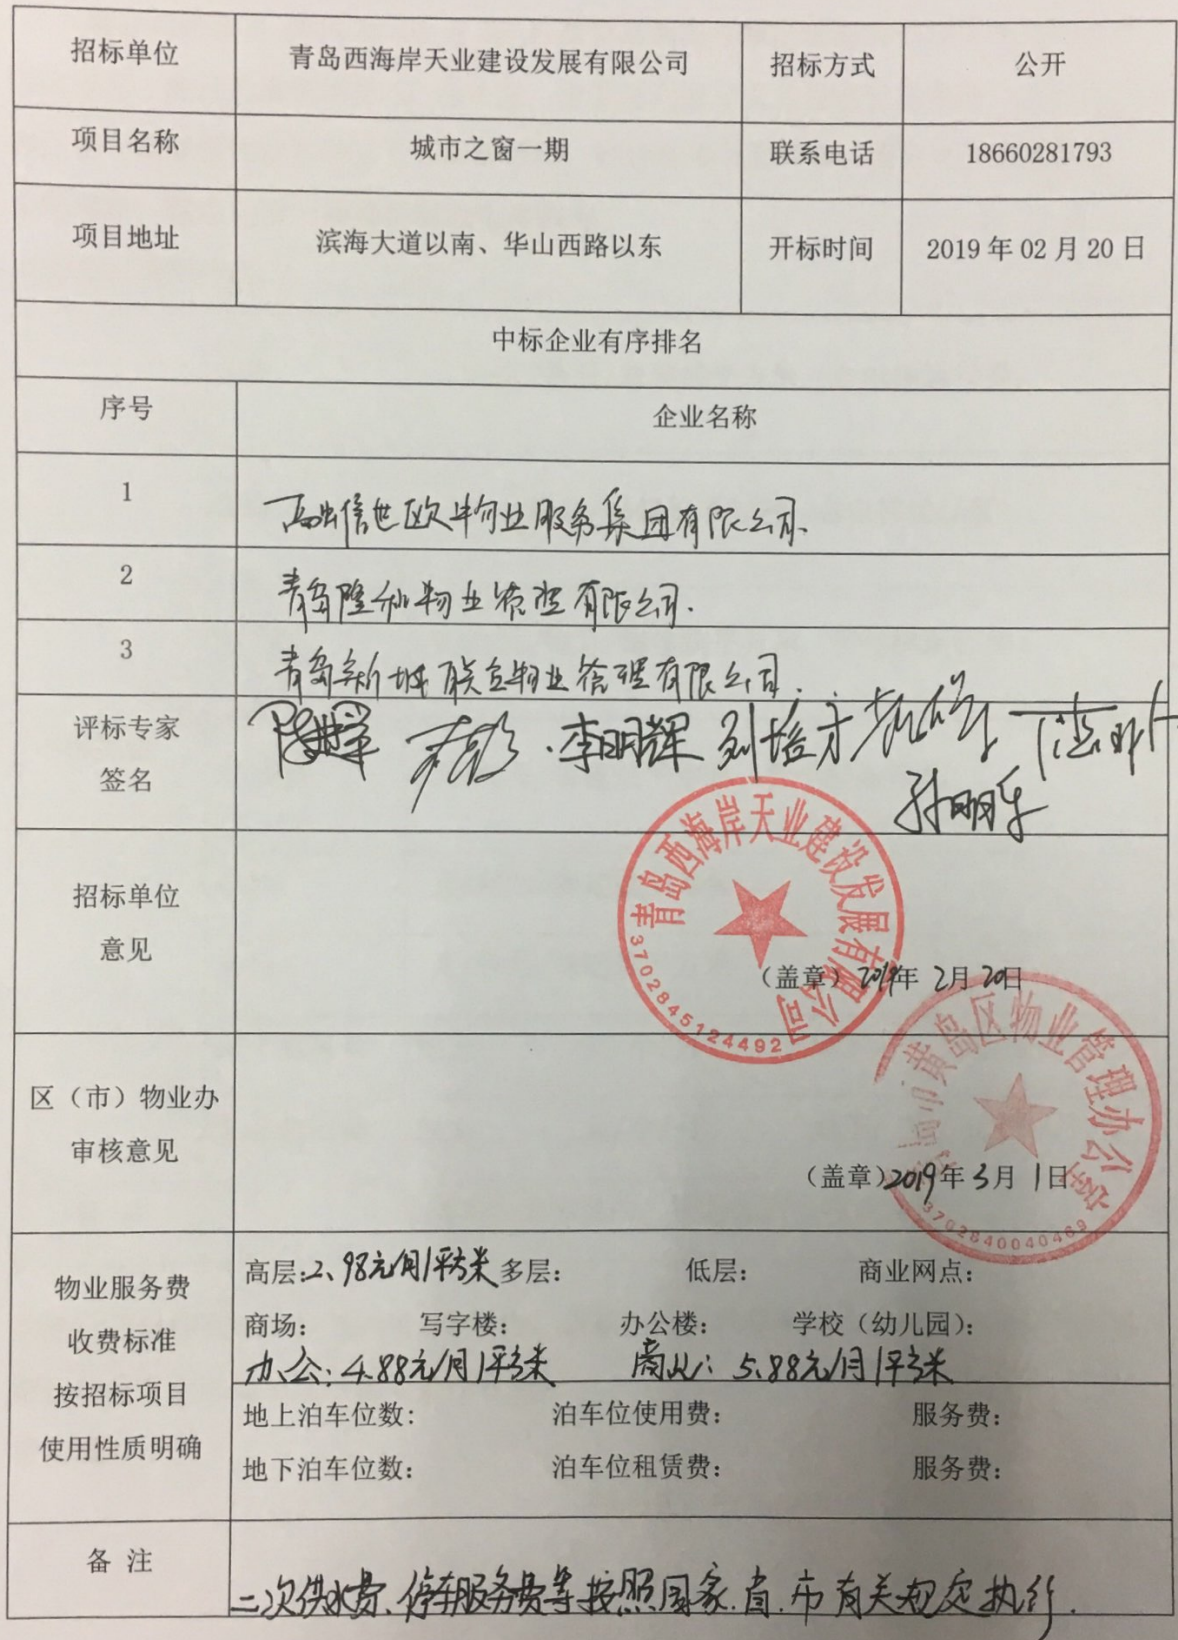 招标单位 青岛西海岸天业建设发展有限公司 招标方式 公开
项目名称 城市之窗一期 联系电话 18660281793
项目地址 滨海大道以南、华山西路以东 开标时间 2019年02月20日
中标企业有序排名
序号 企业名称
1 世欧物业服务集团有限公司.
2 青岛隆和物业管理有限公司.
3 青岛新城联合物业管理有限公司.
评标专家
签名
李明辉 刘培方
孙明乐
青岛西海岸天业建设发展有限公司
3702845124492
招标单位
意见
（盖章）2019年2月20日
黄岛区物业管理办公室
3702840040469
区（市）物业办
审核意见
（盖章）2019年3月1日
物业服务费
收费标准
按招标项目
使用性质明确
高层：2.98元/月/平方米 多层： 低层： 商业网点：
商场： 写字楼： 办公楼： 学校（幼儿园）：
办公：4.88元/月/平方米 商业：5.88元/月/平方米
地上泊车位数： 泊车位使用费： 服务费：
地下泊车位数： 泊车位租赁费： 服务费：
备 注
二次供水费、停车服务费等按照国家.省.市有关规定执行.